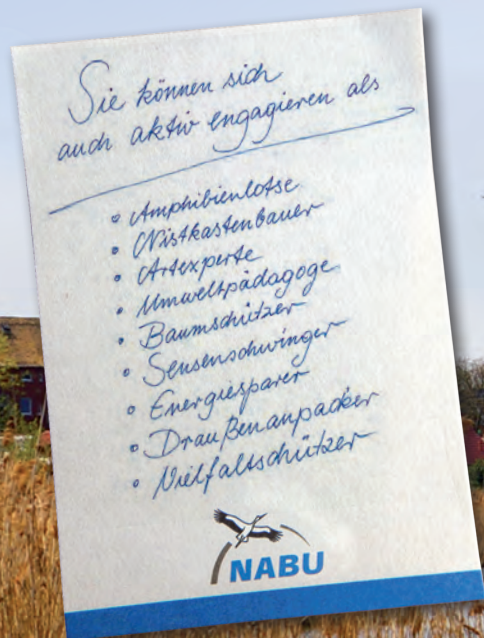 Sie können sich
auch aktiv engagieren als
• Amphibienlotse
• Nistkastenbauer
• Artexperte
• Umweltpädagoge
• Baumschützer
• Sensenschwinger
• Energiesparer
• Draußenanpacker
• Vielfaltschützer
NABU